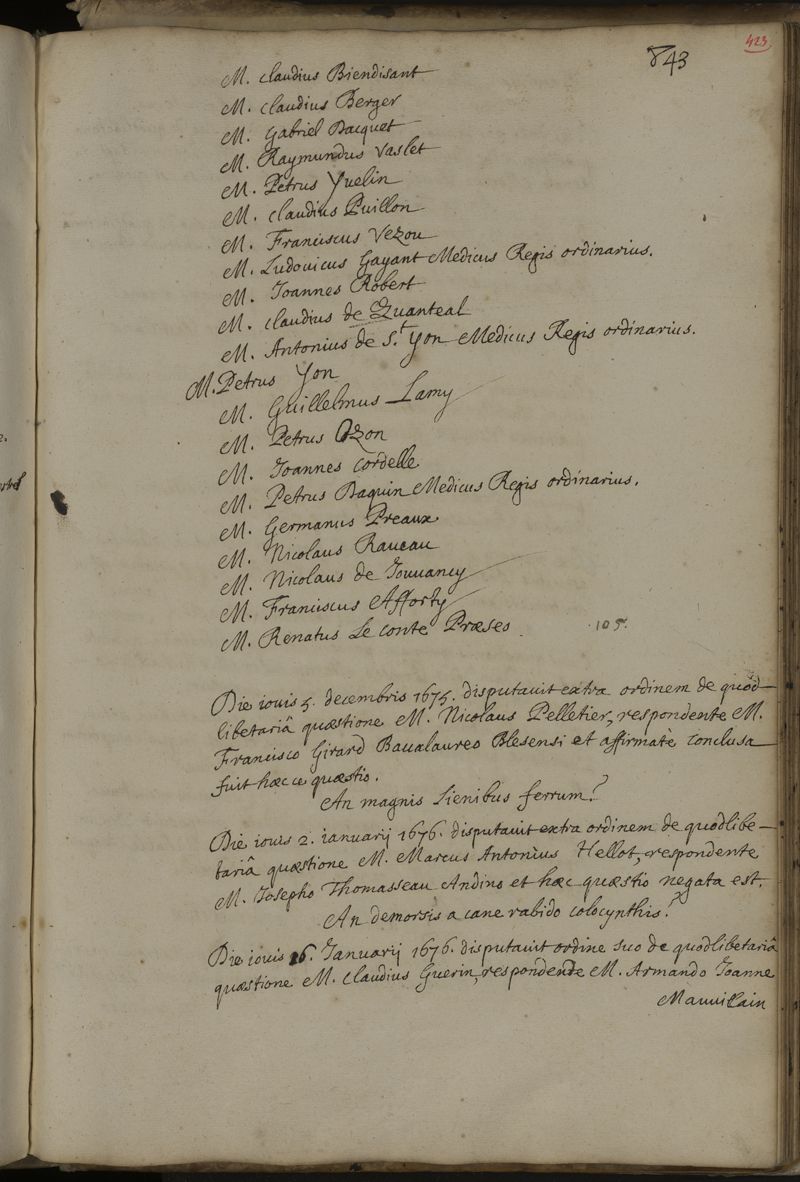 423
843
M. Claudius Biendisant
M. Claudius Berger
M. Gabriel Dacquet
M. Raymundus Vaslet
M. Petrus Yuelin
M. Claudius Puillon
M. Franciscus Vezou
M. Ludouicus Gayant Medicus Regis ordinarius.
M. Joannes Robert
M. Claudius de Quanteal
M. Antonius de S.t Yon Medicus Regis ordinarius.
M. Petrus Yon
M. Guillelmus Lamy
M. Petrus Ozon
M. Joannes Cordelle
M. Petrus Daquin Medicus Regis ordinarius.
M. Germanus Preaux
M. Nicolaus Raueau
M. Nicolaus de Jouuancy
M. Franciscus Afforty
M. Renatus Le Conte Præses . 105.
Die iouis 5. decembris 1675. disputauit extra ordinem de quod-
libetariâ quæstione M. Nicolaus Pelletier, respondente M.
Francisco Girard Baualaureo Blesensi et affirmatè conclusa
fuit hæcce quæstio.
An magnis Lienibus ferrum?
Die iouis 2. ianuarij 1676. disputauit extra ordinem de quodlibe-
tariâ quæstione M. Marcus Antonius Hellot, respondente
M. Josepho Thomasseau Andino et hæc quæstio negata est.
An demorsis a cane rabido colocynthis?
Die iouis 16. Januarij 1676. disputauit ordine suo de quodlibetariâ
quæstione M. Claudius Guerin, respondente M. Armando Joanne
Mauuillain